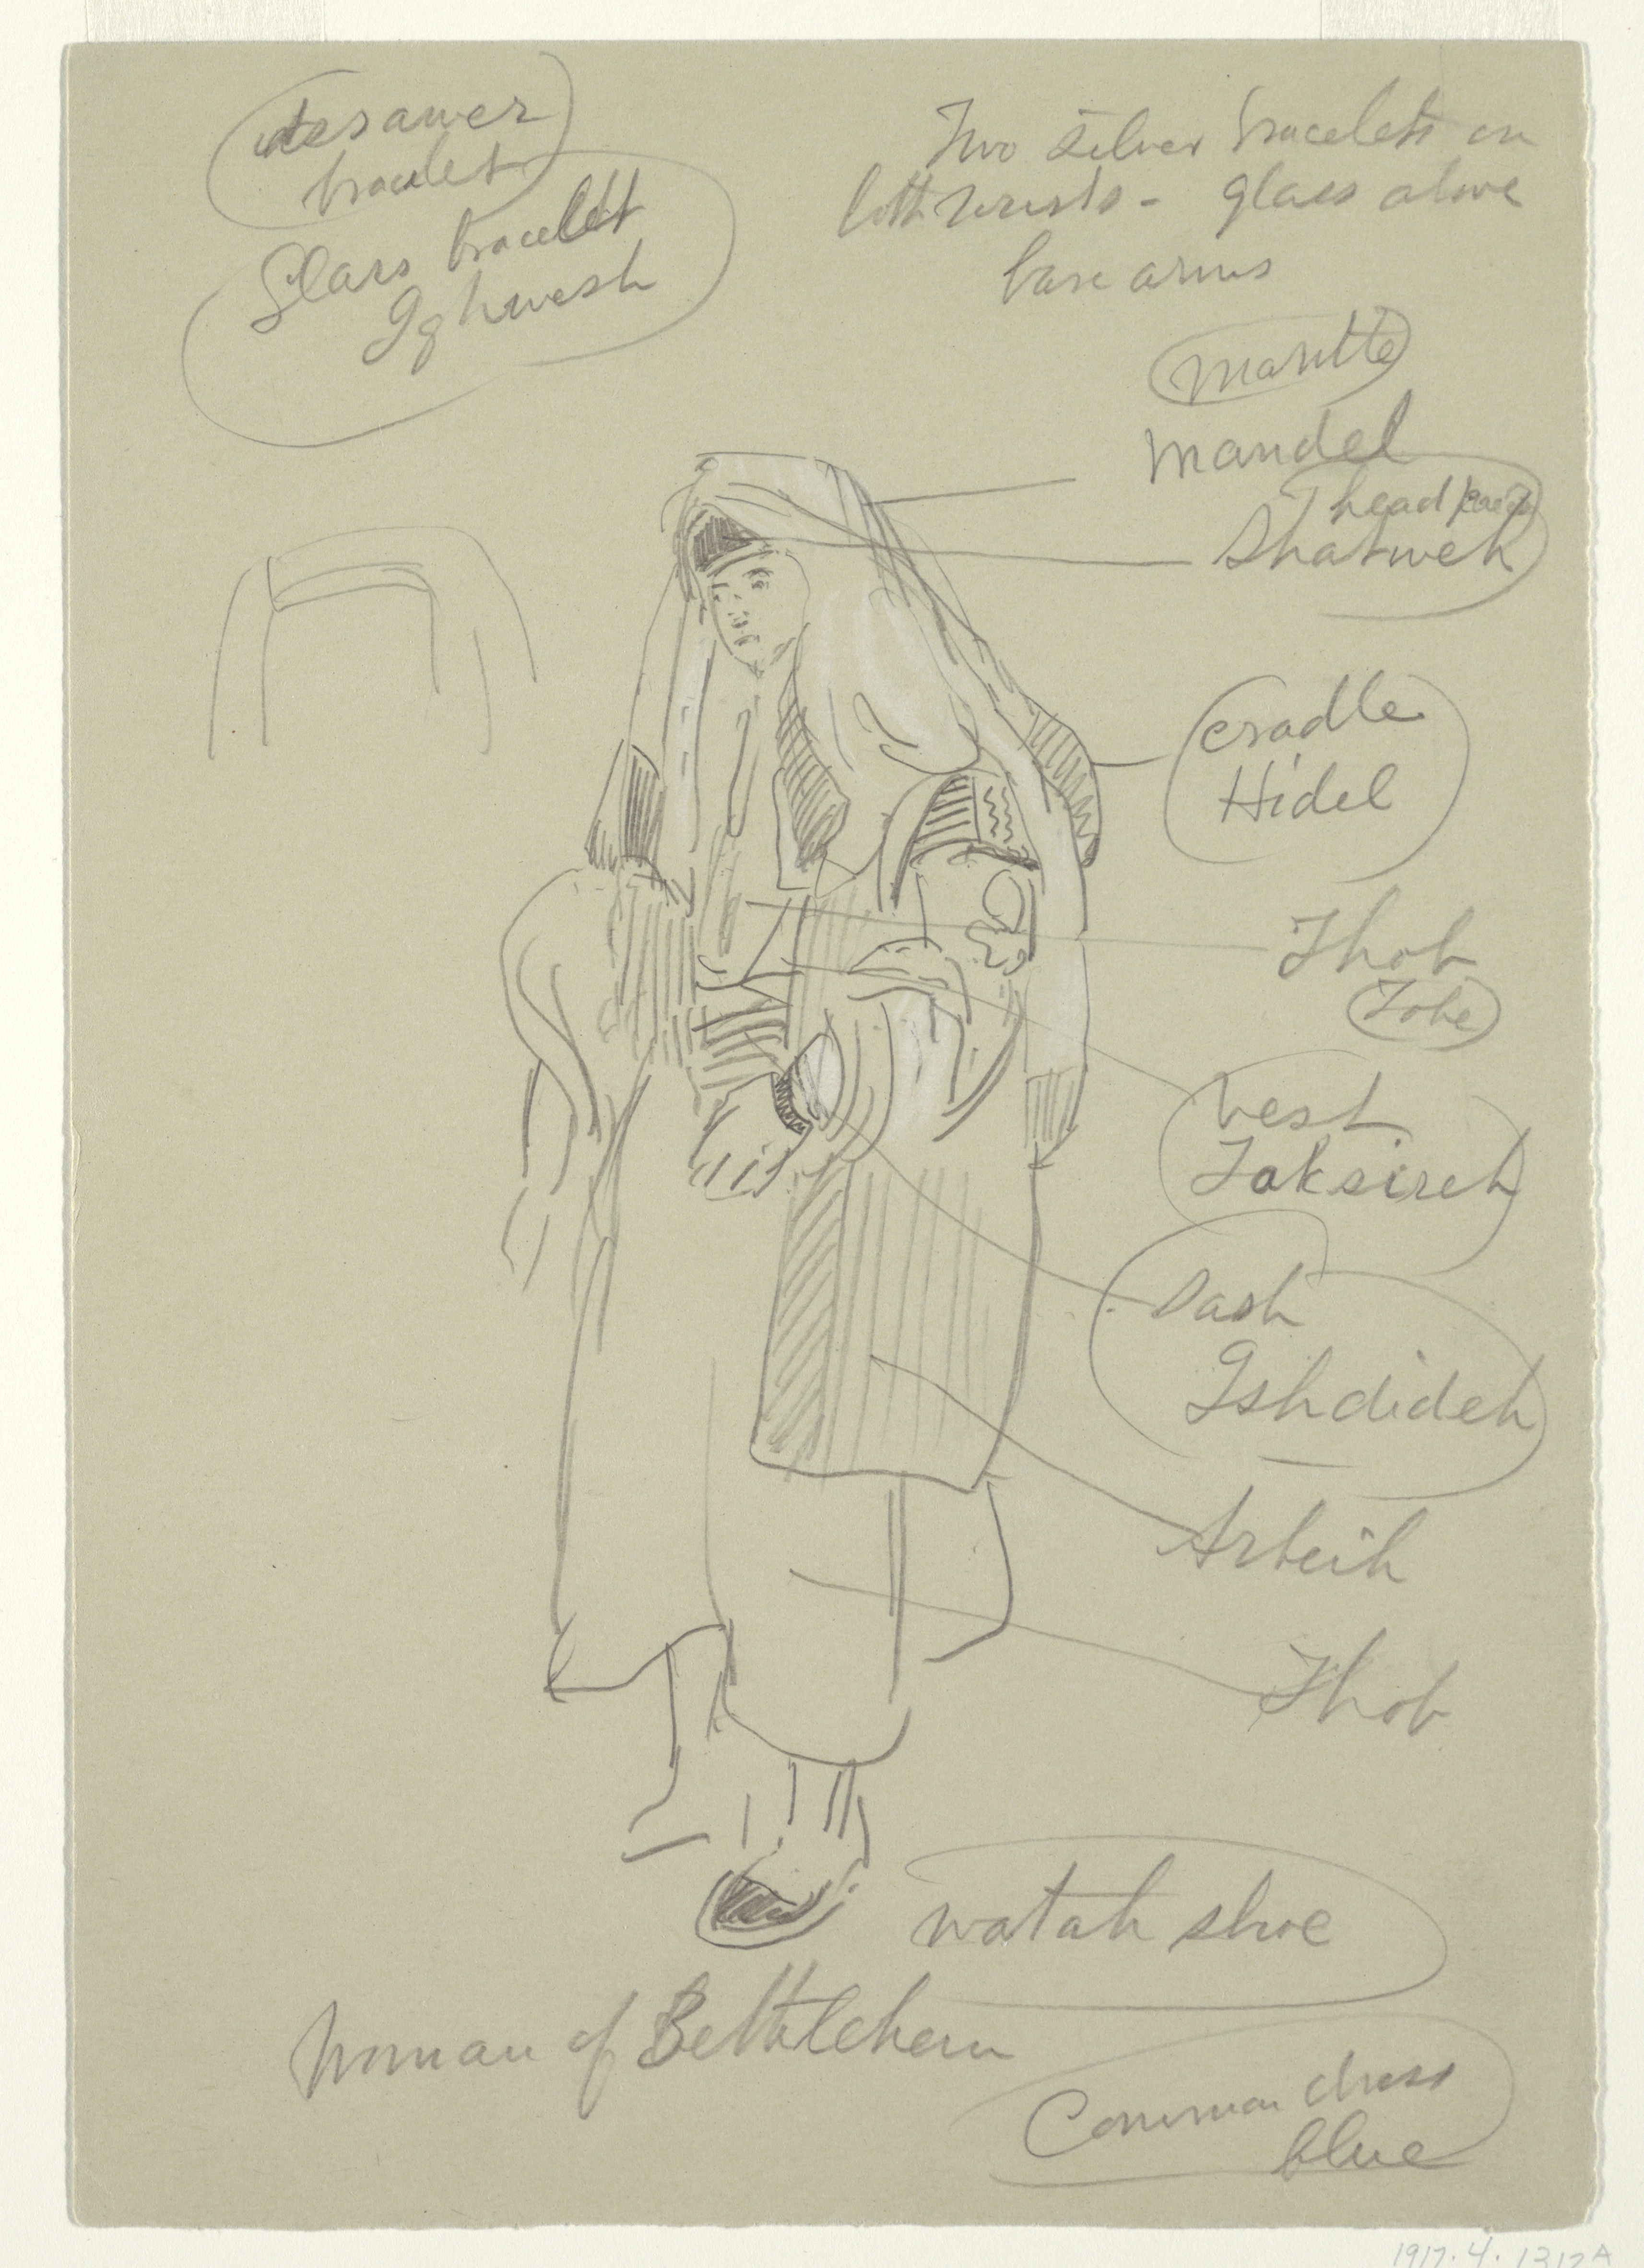 desawer
bracelet
Glass bracelet
Ighwesh
Two silver bracelets on
both wrists - glass above
bare arms
mantle
mandel
head
Shatweh
cradle
Hidel
Thob
Tobe
vest
Taksireh
Sash
Ishdideh
Arbeih
Thob
watah shoe
Woman of Bethlehem
Common dress
blue
1917.4.1312A